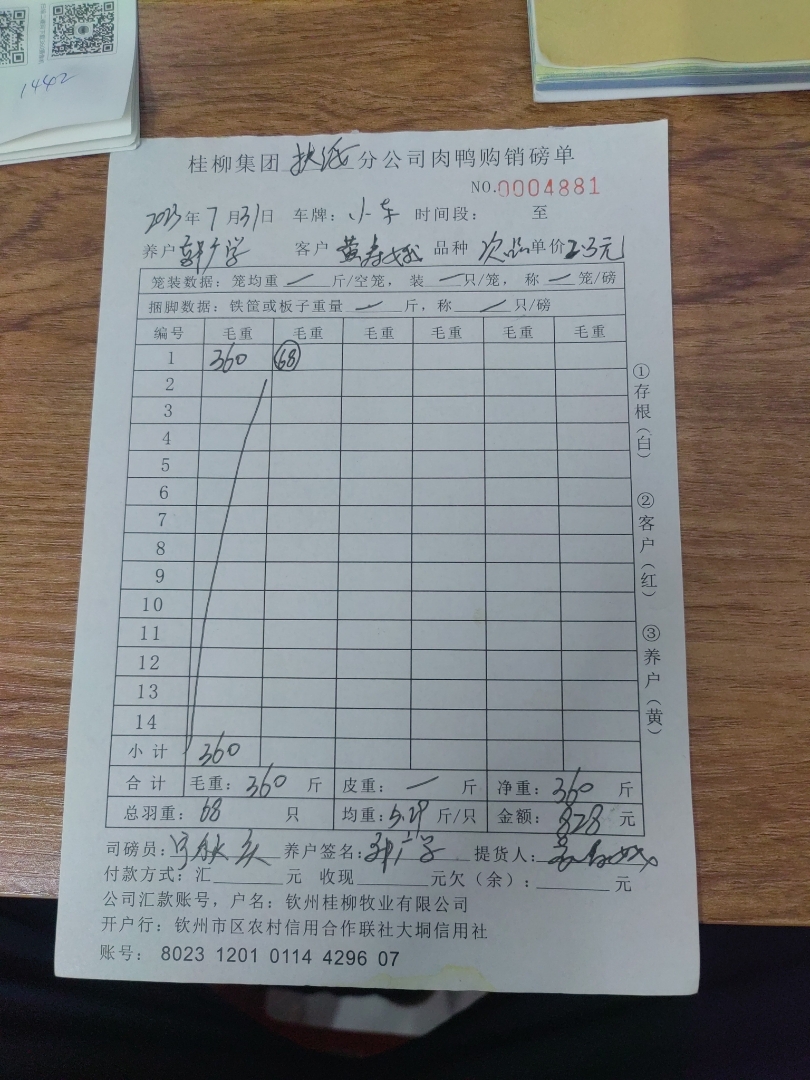 1442
桂柳集团 扶绥 分公司肉鸭购销磅单
NO.0004881
2023年7月31日 车牌：小车 时间段： 至
养户 客户 黄 品种 次品 单价2.3元
笼装数据：笼均重 — 斤/空笼， 装 — 只/笼， 称 — 笼/磅
捆脚数据：铁筐或板子重量 — 斤，称 — 只/磅
编号 毛重 毛重 毛重 毛重 毛重 毛重
1 360 68
2
3
4
5
6
7
8
9
10
11
12
13
14
小计 360
合计 毛重：360 斤 皮重：— 斤 净重：360 斤
总羽重：68 只 均重：5.29 斤/只 金额：828 元
司磅员： 养户签名： 提货人：
付款方式：汇 元 收现 元欠（余）： 元
公司汇款账号，户名：钦州桂柳牧业有限公司
开户行：钦州市区农村信用合作联社大垌信用社
账号： 8023 1201 0114 4296 07
①存根（白） ②客户（红） ③养户（黄）